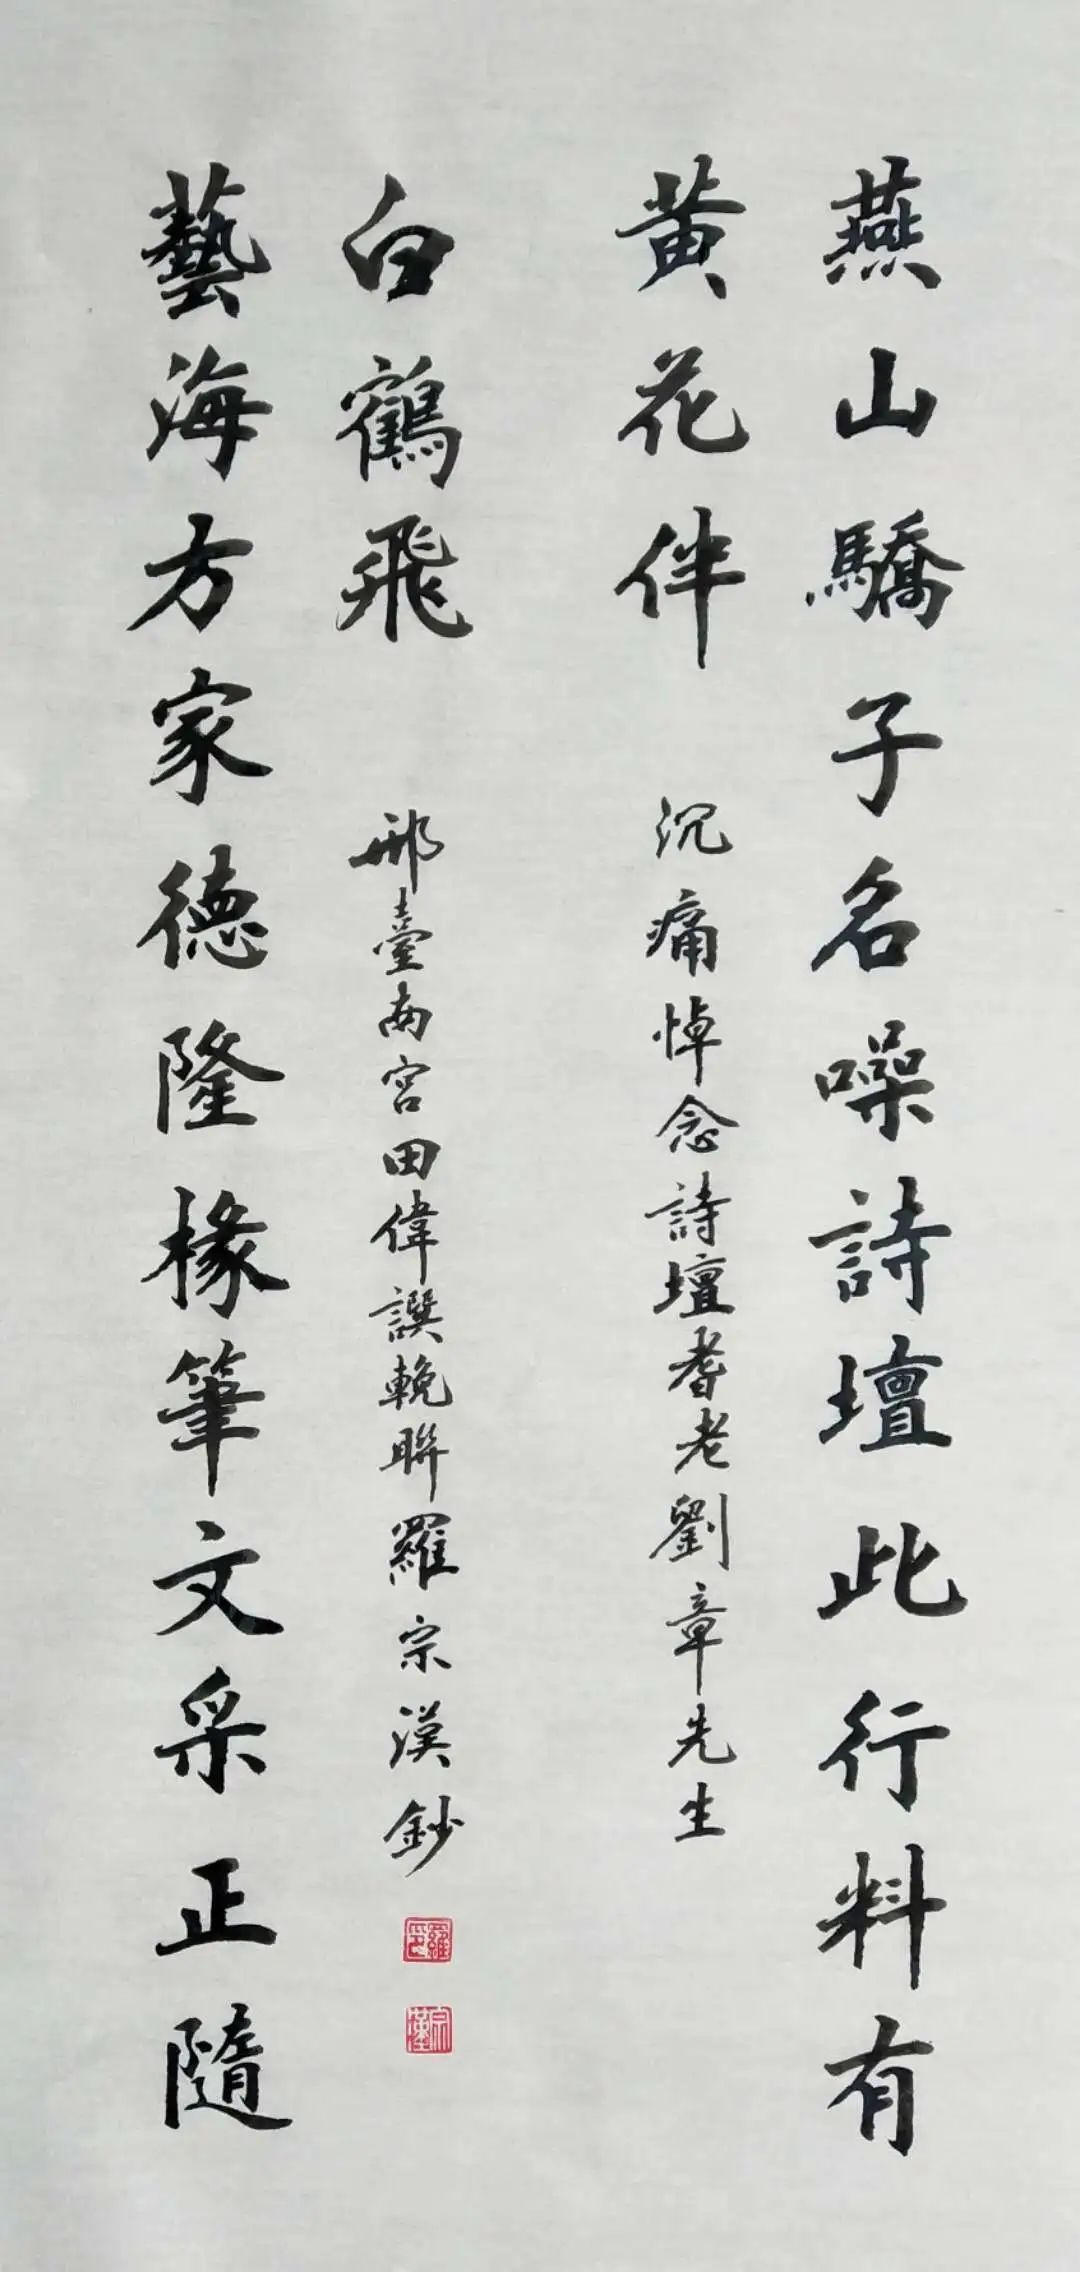 燕山驕子名噪詩壇此行料有
黄花伴
沉痛悼念詩壇耆老劉章先生
藝海方家德隆椽筆文采正隨
白鶴飛
邢臺南宫田偉譔輓聯羅宗漢鈔
羅印
宗漢